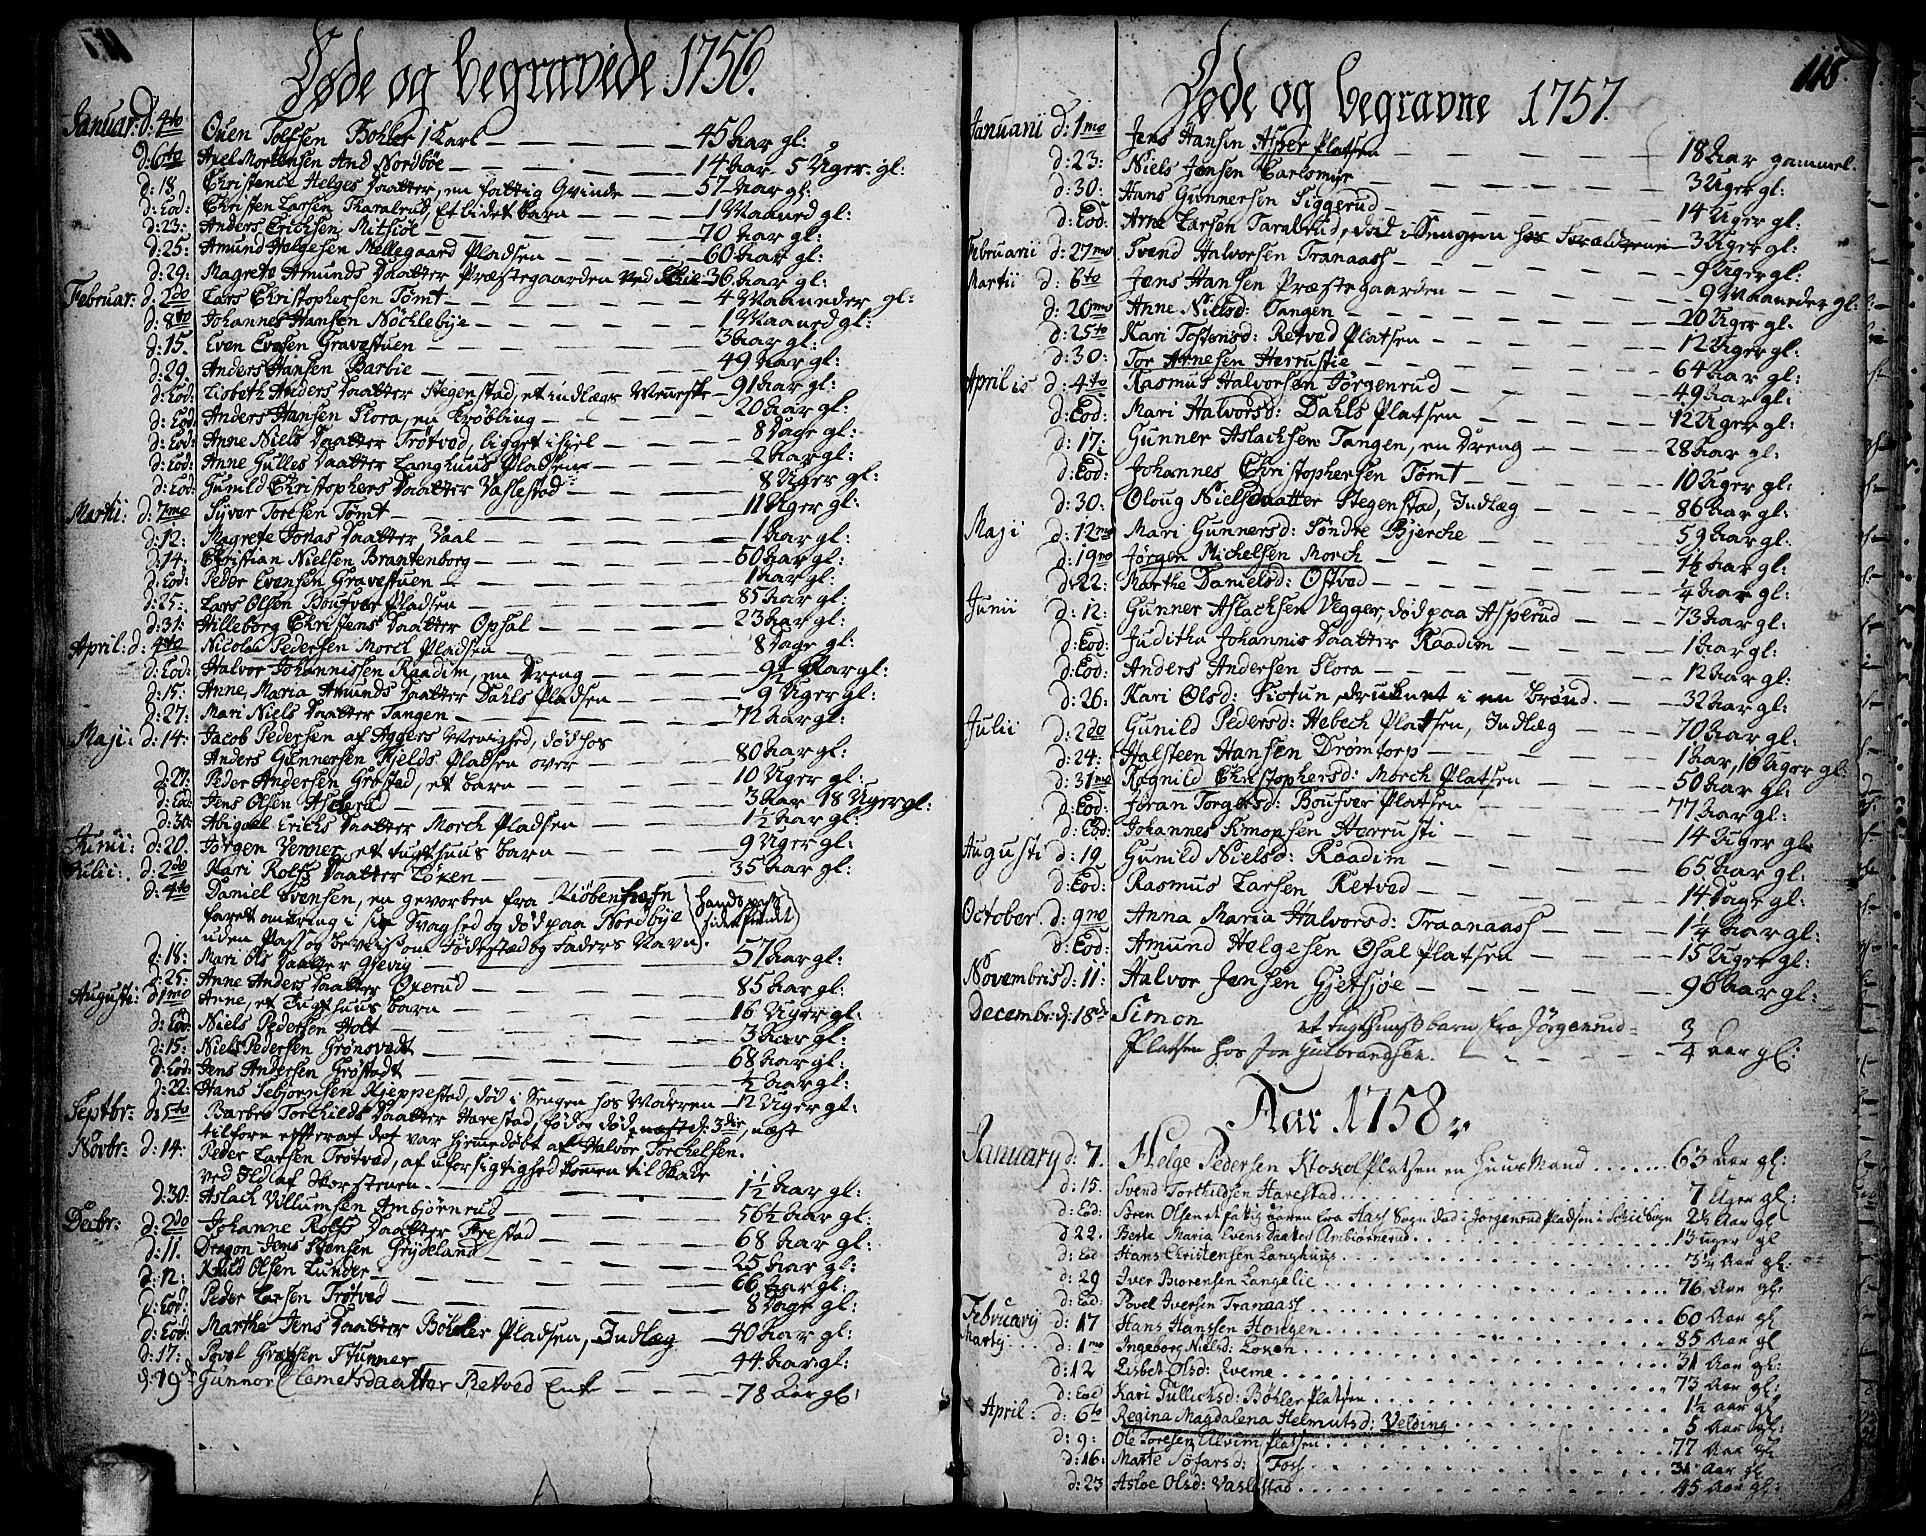 Døde og begravede 1756.
Januar: d: 4to Ouen Tolfsen Bohler 1 Karl 45 Aar gl:
d: 6to Axel Mortensen And Nordbye 14 Aar 5 Uger gl:
d: 18 Christence Helges Daatter, en fattig Qvinde 57 Aar gl:
d: Eod: Christen Larsen Tharalrud, Et lidet barn 1 Maaned gl:
d: 23: Anders Erichsen Mitsiøe 70 Aar gl:
d: 25: Amund Helgesen Mellegaard Pladsen 60 Aar gl:
d: 29: Magrete Amunds Daatter Præstegaarden ved Schie 36 Aar gl:
Februar: d: 2do Lars Christophersen Tømt 4 Maaneder gl:
d: 8to Johannes Hansen Nøchlebye 1 Maaned gl:
d: 15. Even Evesen Gravestuen 3 Aar gl:
d: 29. Anders Hansen Barbie 49 Aar gl:
d: Eod: Lisbeth Anders Daatter Stegenstad, et indlægs Meneske 91 Aar gl:
d: Eod: Anders Hansen Flora, en Krøbling 20 Aar gl:
d: Eod: Anne Niels Daatter Trøtved, ligget ihiel 8 Dage gl:
d: Eod: Anne Gulles Daatter Langhuus Pladsen 2 Aar gl:
d: Eod: Gunild Christophers Daatter Vaslestad 8 Uger gl:
Martii: d: 7mo Syver Toresen Tømt 11 Uger gl:
d: 12: Magrete Jonas Daatter Vaal 1 Aar gl:
d: 14: Christian Nielsen Brantenborg 50 Aar gl:
d: Eod: Peder Evensen Gravestuen 1 Aar gl:
d: 25: Lars Olsen Bousver Pladsen 85 Aar gl:
d: 31: Hilleborg Christens Daatter Opsal 23 Aar gl:
April: d: 4to Nicolai Pedersen Morch Pladsen 8 Dage gl:
d: Eod: Halvor Johannissen Raadim, en Dreng 9½ Aar gl:
d: 15: Anne Maria Amunds Daatter Dahls Pladsen 9 Uger gl:
d: 27: Mari Niels Daatter Tangen 72 Aar gl:
Maji: d: 14: Jacob Pedersen af Aggers Menighed, død hos
Anders Gunnersen Kields Pladsen over 80 Aar gl:
d: 27: Peder Andersen Grøstad, et barn 10 Uger gl:
d: Eod: Jens Olsen Asperud 3 Aar 18 Uger gl:
d: 30: Abigael Erichs Daatter Morch Pladsen 1½ Aar gl:
Junii: d: 20. Jørgen Venner, et tugthuus barn 9 Uger gl:
Julii: d: 2do Kari Rolfs Daatter Løken 35 Aar gl:
d: 4to Daniel Evensen, en gevorben fra Kiøbenhafn (hands pass
faret omkring i sin Svaghed og død paa Nordbye siden fundet)
uden Pass og bevis om Fødested og Faders Navn.
d: 18: Mari Ols Daatter Gsevig 57 Aar gl:
d: 25: Anne Anders Daatter Oxerud 85 Aar gl:
Augusti: d 1mo Anne, et Tugthuus barn 16 Uger gl:
d: Eod: Niels Pedersen Holt 3 Aar gl:
d: 15: Niels Pedersen Grønsvedt 68 Aar gl:
d: Eod: Jens Andersen Grøstedt ½ Aar gl:
d: 22: Hans Sebjørnsen Kieppestad, død i Sengen hos Moderen 12 Uger gl:
Septbr: d: 5to Barbro Torchilds Daatter Harestad, fødde død, næst d. 3die, næst
tilforn efterat det var hjemmedøbt af Halvor Torchelsen.
Novbr: d: 14: Peder Larsen Trøtved, af uforsigtighed komen til Skade
ved Ild af Skorstenen 1½ Aar gl:
d: 30: Aslack Villumsen Ambjørnrud 56½ Aar gl:
Decbr: d: 2do Johanne Rolfs Daatter Frestad 68 Aar gl:
d: 11. Dragon Jens Steensen Grydeland 25 Aar gl:
d: 12: Knud Olsen Lunder 66 Aar gl:
d: Eod: Peder Larsen Trøtved 8 Dage gl:
d: Eod: Marthe Jens Daatter Bøhler Pladsen, Indlæg 40 Aar gl:
d: 17: Povel Grersen Stunner 44 Aar gl:
d: 19d Gunnor Clemetsdaatter Retved Enke 78 Aar gl:
115
Døde og begravne 1757.
Januarii d: 1mo Jens Hansen Asper Platsen 18 Aar gammel.
d: 23: Niels Jensen Carlsmyr 3 Uger gl:
d: 30: Hans Gunnersen Siggerud 14 Uger gl:
d: Eod: Arne Larsen Taralrud, død i Sengen hos Forældrene 3 Uger gl:
Februarii d: 27mo Svend Halvorsen Tranaass 9 Uger gl:
Martii d: 6to Jens Hansen Præstegaarden 9 Maaneder gl:
d: 20mo Anne Nielsd: Tangen 20 Uger gl:
d: 25to Kari Tostensd: Retved Platsen 12 Uger gl:
d: 30: Tor Arnesen Herrustie 64 Aar gl:
Aprilis d: 4to Rasmus Halvorsen Jørgenrud 49 Aar gl:
d: Eod: Mari Halvorsd: Dahls Platsen 12 Uger gl:
d: 17: Gunner Aslachsen Tangen, en Dreng 28 Aar gl:
d: Eod: Johannes Christophersen Tømt 10 Uger gl:
d: 30: Oloug Nielsdaatter Stegenstad, Indlæg 86 Aar gl:
Maji d: 12mo Mari Gunnersd: Søndre Bjerche 59 Aar gl:
d: 19no Jørgen Michelsen Morch 1½ Aar gl:
d: 22: Marthe Danielsd: Østved ¼ Aar gl:
Junii d: 12: Gunner Aslachsen Vegger, død paa Asperud 73 Aar gl:
d: Eod: Juditha Johannis Daatter Raadim 1 Aar gl:
d: Eod: Anders Andersen Flora 12 Aar gl:
d: 26: Kari Olsd: Siotun, druknet i en brønd. 32 Aar gl:
Julii d: 2do Gunild Pedersd: Hebech Platsen, Indlæg 70 Aar gl:
d: 24: Halsteen Hansen Drømtorp 1 Aar, 16 Uger gl:
d: 31mo Ragnild Christophersd: Morch Platsen 50 Aar gl:
d: Eod: Jøran Torgersd: Bousver Platsen 77 Aar gl:
d: Eod: Johannes Simonsen Herrusti 14 Uger gl:
Augusti d: 19 Gunild Nielsd: Raadim 65 Aar gl:
d: Eod: Rasmus Larsen Retved 14 Dage gl:
October. d: 9no Anna Maria Halvorsd: Traanaass 1¼ Aar gl:
d: Eod: Amund Helgesen Osal Platsen 15 Uger gl:
Novembris d: 11: Halvor Jensen Gjetsjøe 96 Aar gl:
Decembr: d: 18de Simon et tugthuus barn fra Jørgenrud
Platsen hos Jon Gulbrandsen. ¾ Aar gl:
Aar 1758
January d: 7. Helge Pedersen Kloxol Platsen en Huus Mand 63 Aar gl:
d: 15. Svend Torkildsen Harestad 7 Uger gl:
d: Eod: Søren Olsen et fattig barn fra Aass Sogn død i Jørgenrud Pladsen i Schie Sogn 2½ Aar gl
d 22. Berte Maria Evens Daatter Ambiørnerud 13 uger gl
d: Eod Hans Christensen Langhuus 3¼ Aar gl:
d: 29 Iver Biørensen Langelie 76 Aar gl:
d: Eod: Povel Iversen Tranaass 60 Aar gl
February d: 17 Hans Hanssen Hougen 85 Aar gl
Marty d: 1mo Ingeborg Nielsd: Løken 31 Aar gl:
d: 12 Lisbet Olsd: Everne 73 Aar gl:
d: Eod Kari Gullichsd: Bøhler Platsen 1½ aar gl
April: d: 6to Regina Magdalena Helmutsd: Velding 5 Aar gl:
d: 9: Ole Toresen Alvim Platsen 77 Aar gl
d: 16: Marte Tofarsd: Foss 31 Aar gl
d: 23 Asloe Olsd: Vaslestad 45 Aar gl: